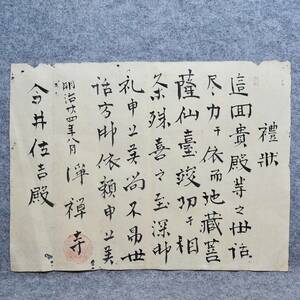 禮狀
這回貴殿等之世話
尽力ニ依而地藏菩
薩仙臺竣功ニ相
成殊喜之至深御
礼申上候尚不易世
話方御依頼申上候
明治廿四年八月 禅寺
今井佐吉殿